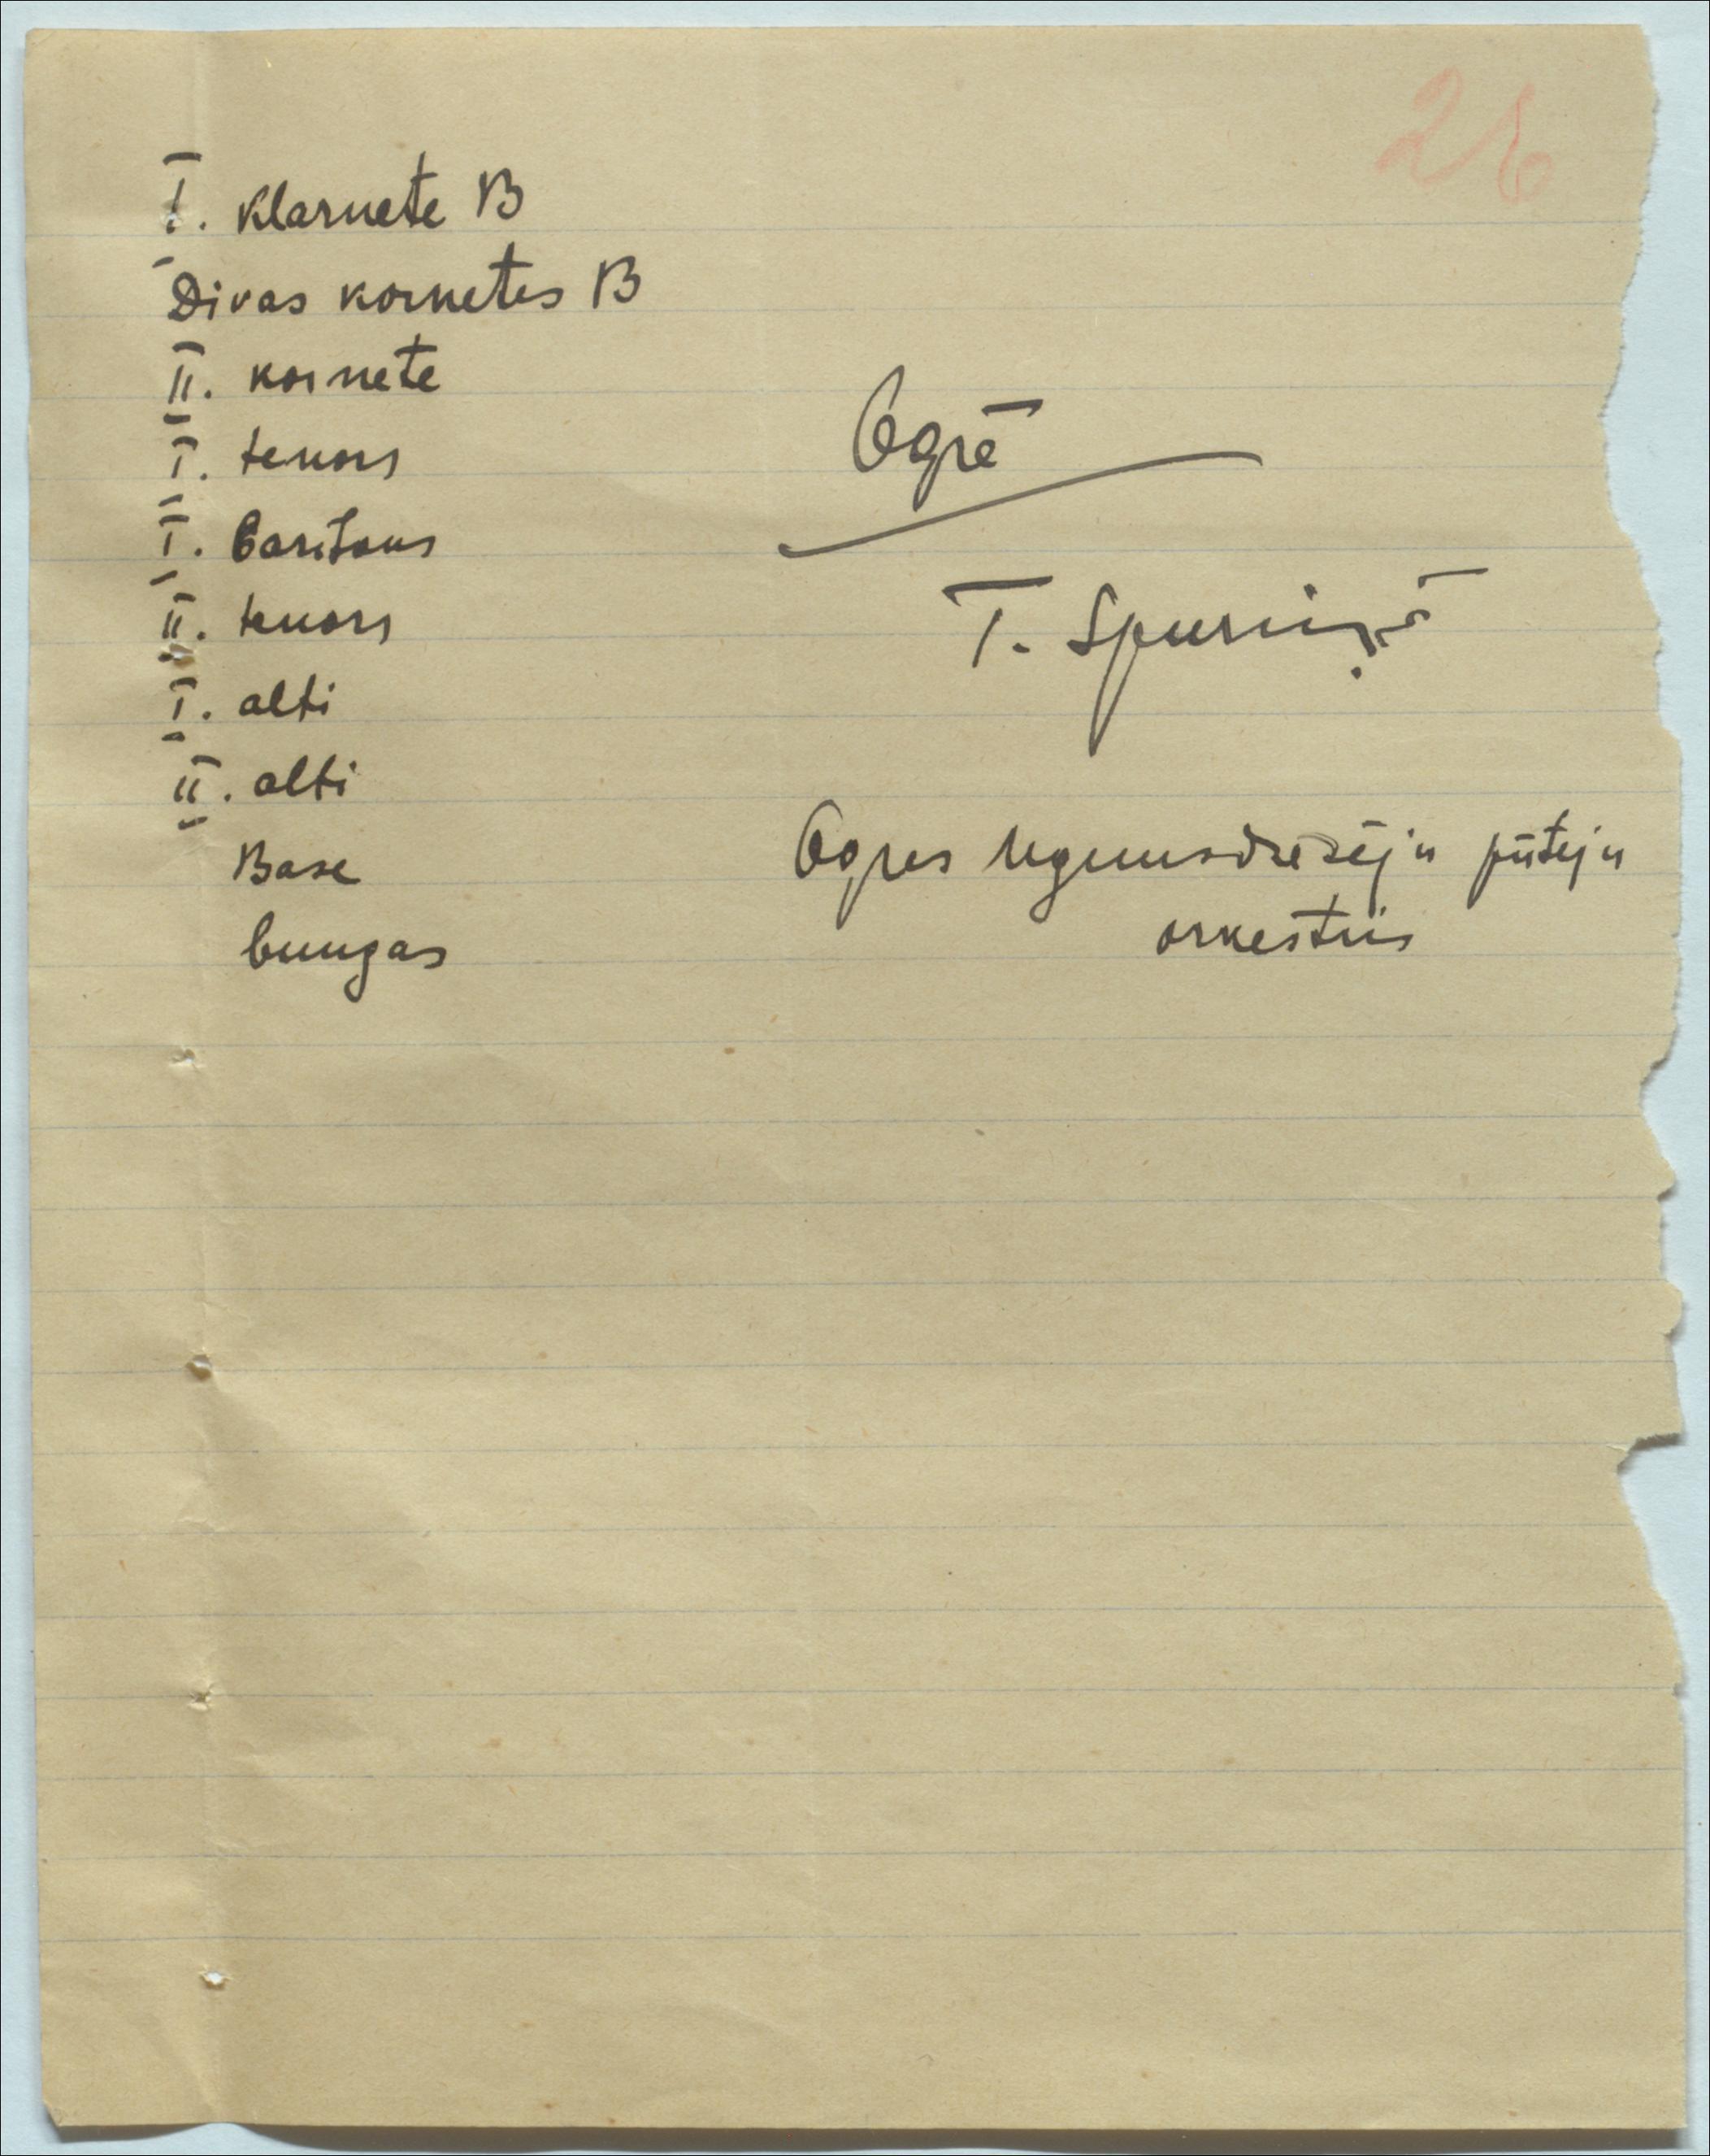 26
I. Klarnete B
Divas kornetes B
II. kornete
I. tenors
I. baritons
II. tenors
I. alti
II. alti
Base
bungas
Ogrē
T. Spuriņā
Ogres ugunsdzēsēju pūtēju
orkestris